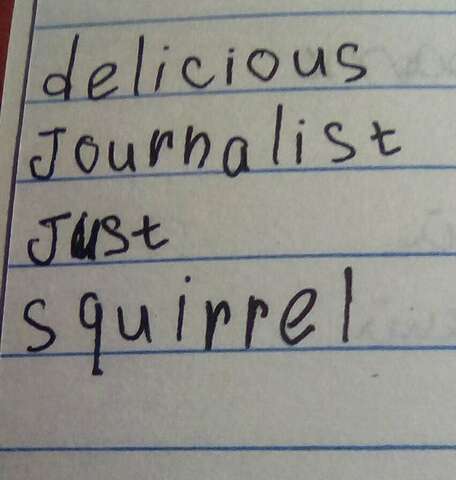 delicious
Journalist
Just
squirrel